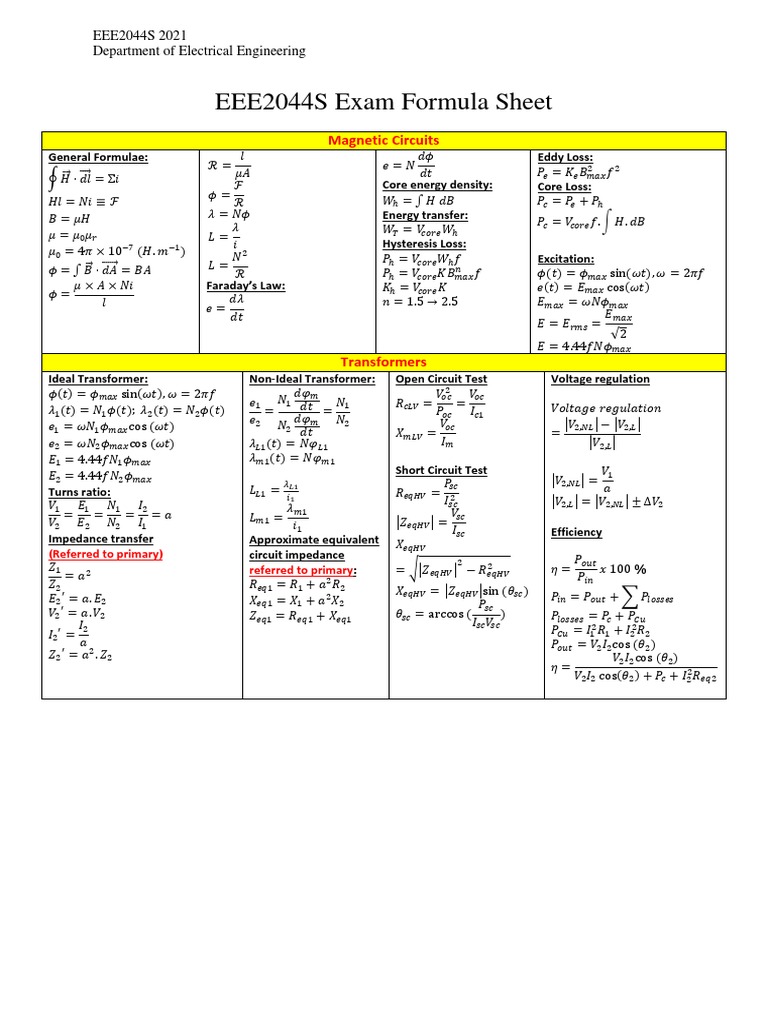 EEE2044S 2021
Department of Electrical Engineering
EEE2044S Exam Formula Sheet
Magnetic Circuits
General Formulae:
∮ H⃗ · dl⃗ = Σi
Hl = Ni ≡ ℱ
B = μH
μ = μ₀μᵣ
μ₀ = 4π × 10⁻⁷ (H.m⁻¹)
ϕ = ∫ B⃗ · dA⃗ = BA
ϕ = (μ × A × Ni)/l
ℛ = l/(μA)
ϕ = ℱ/ℛ
λ = Nϕ
L = λ/i
L = N²/ℛ
Faraday's Law:
e = dλ/dt
e = N dϕ/dt
Core energy density:
W_h = ∫ H dB
Energy transfer:
W_T = V_core W_h
Hysteresis Loss:
P_h = V_core W_h f
P_h = V_core K B_max^n f
K_h = V_core K
n = 1.5 → 2.5
Eddy Loss:
P_e = K_e B_max² f²
Core Loss:
P_c = P_e + P_h
P_c = V_core f. ∫ H. dB
Excitation:
ϕ(t) = ϕ_max sin(ωt), ω = 2πf
e(t) = E_max cos(ωt)
E_max = ωNϕ_max
E = E_rms = E_max/√2
E = 4.44fNϕ_max
Transformers
Ideal Transformer:
ϕ(t) = ϕ_max sin(ωt), ω = 2πf
λ₁(t) = N₁ϕ(t); λ₂(t) = N₂ϕ(t)
e₁ = ωN₁ϕ_max cos (ωt)
e₂ = ωN₂ϕ_max cos (ωt)
E₁ = 4.44fN₁ϕ_max
E₂ = 4.44fN₂ϕ_max
Turns ratio:
V₁/V₂ = E₁/E₂ = N₁/N₂ = I₂/I₁ = a
Impedance transfer
(Referred to primary)
Z₁/Z₂ = a²
E₂′ = a. E₂
V₂′ = a. V₂
I₂′ = I₂/a
Z₂′ = a². Z₂
Non-Ideal Transformer:
e₁/e₂ = (N₁ dφ_m/dt)/(N₂ dφ_m/dt) = N₁/N₂
λ_L1(t) = Nφ_L1
λ_m1(t) = Nφ_m
L_L1 = λ_L1/i₁
L_m1 = λ_m1/i₁
Approximate equivalent
circuit impedance
referred to primary:
R_eq1 = R₁ + a²R₂
X_eq1 = X₁ + a²X₂
Z_eq1 = R_eq1 + X_eq1
Open Circuit Test
R_cLV = V_oc²/P_oc = V_oc/I_c1
X_mLV = V_oc/I_m
Short Circuit Test
R_eqHV = P_sc/I_sc²
|Z_eqHV| = V_sc/I_sc
X_eqHV
= √(|Z_eqHV|² − R_eqHV²)
X_eqHV = |Z_eqHV| sin (θ_sc)
θ_sc = arccos (P_sc/(I_sc V_sc))
Voltage regulation
Voltage regulation
= (|V_2,NL| − |V_2,L|)/|V_2,L|
|V_2,NL| = V₁/a
|V_2,L| = |V_2,NL| ± ΔV₂
Efficiency
η = P_out/P_in x 100 %
P_in = P_out + ∑ P_losses
P_losses = P_c + P_Cu
P_Cu = I₁²R₁ + I₂²R₂
P_out = V₂I₂cos (θ₂)
η = V₂I₂cos (θ₂)/(V₂I₂ cos(θ₂) + P_c + I₂²R_eq2)